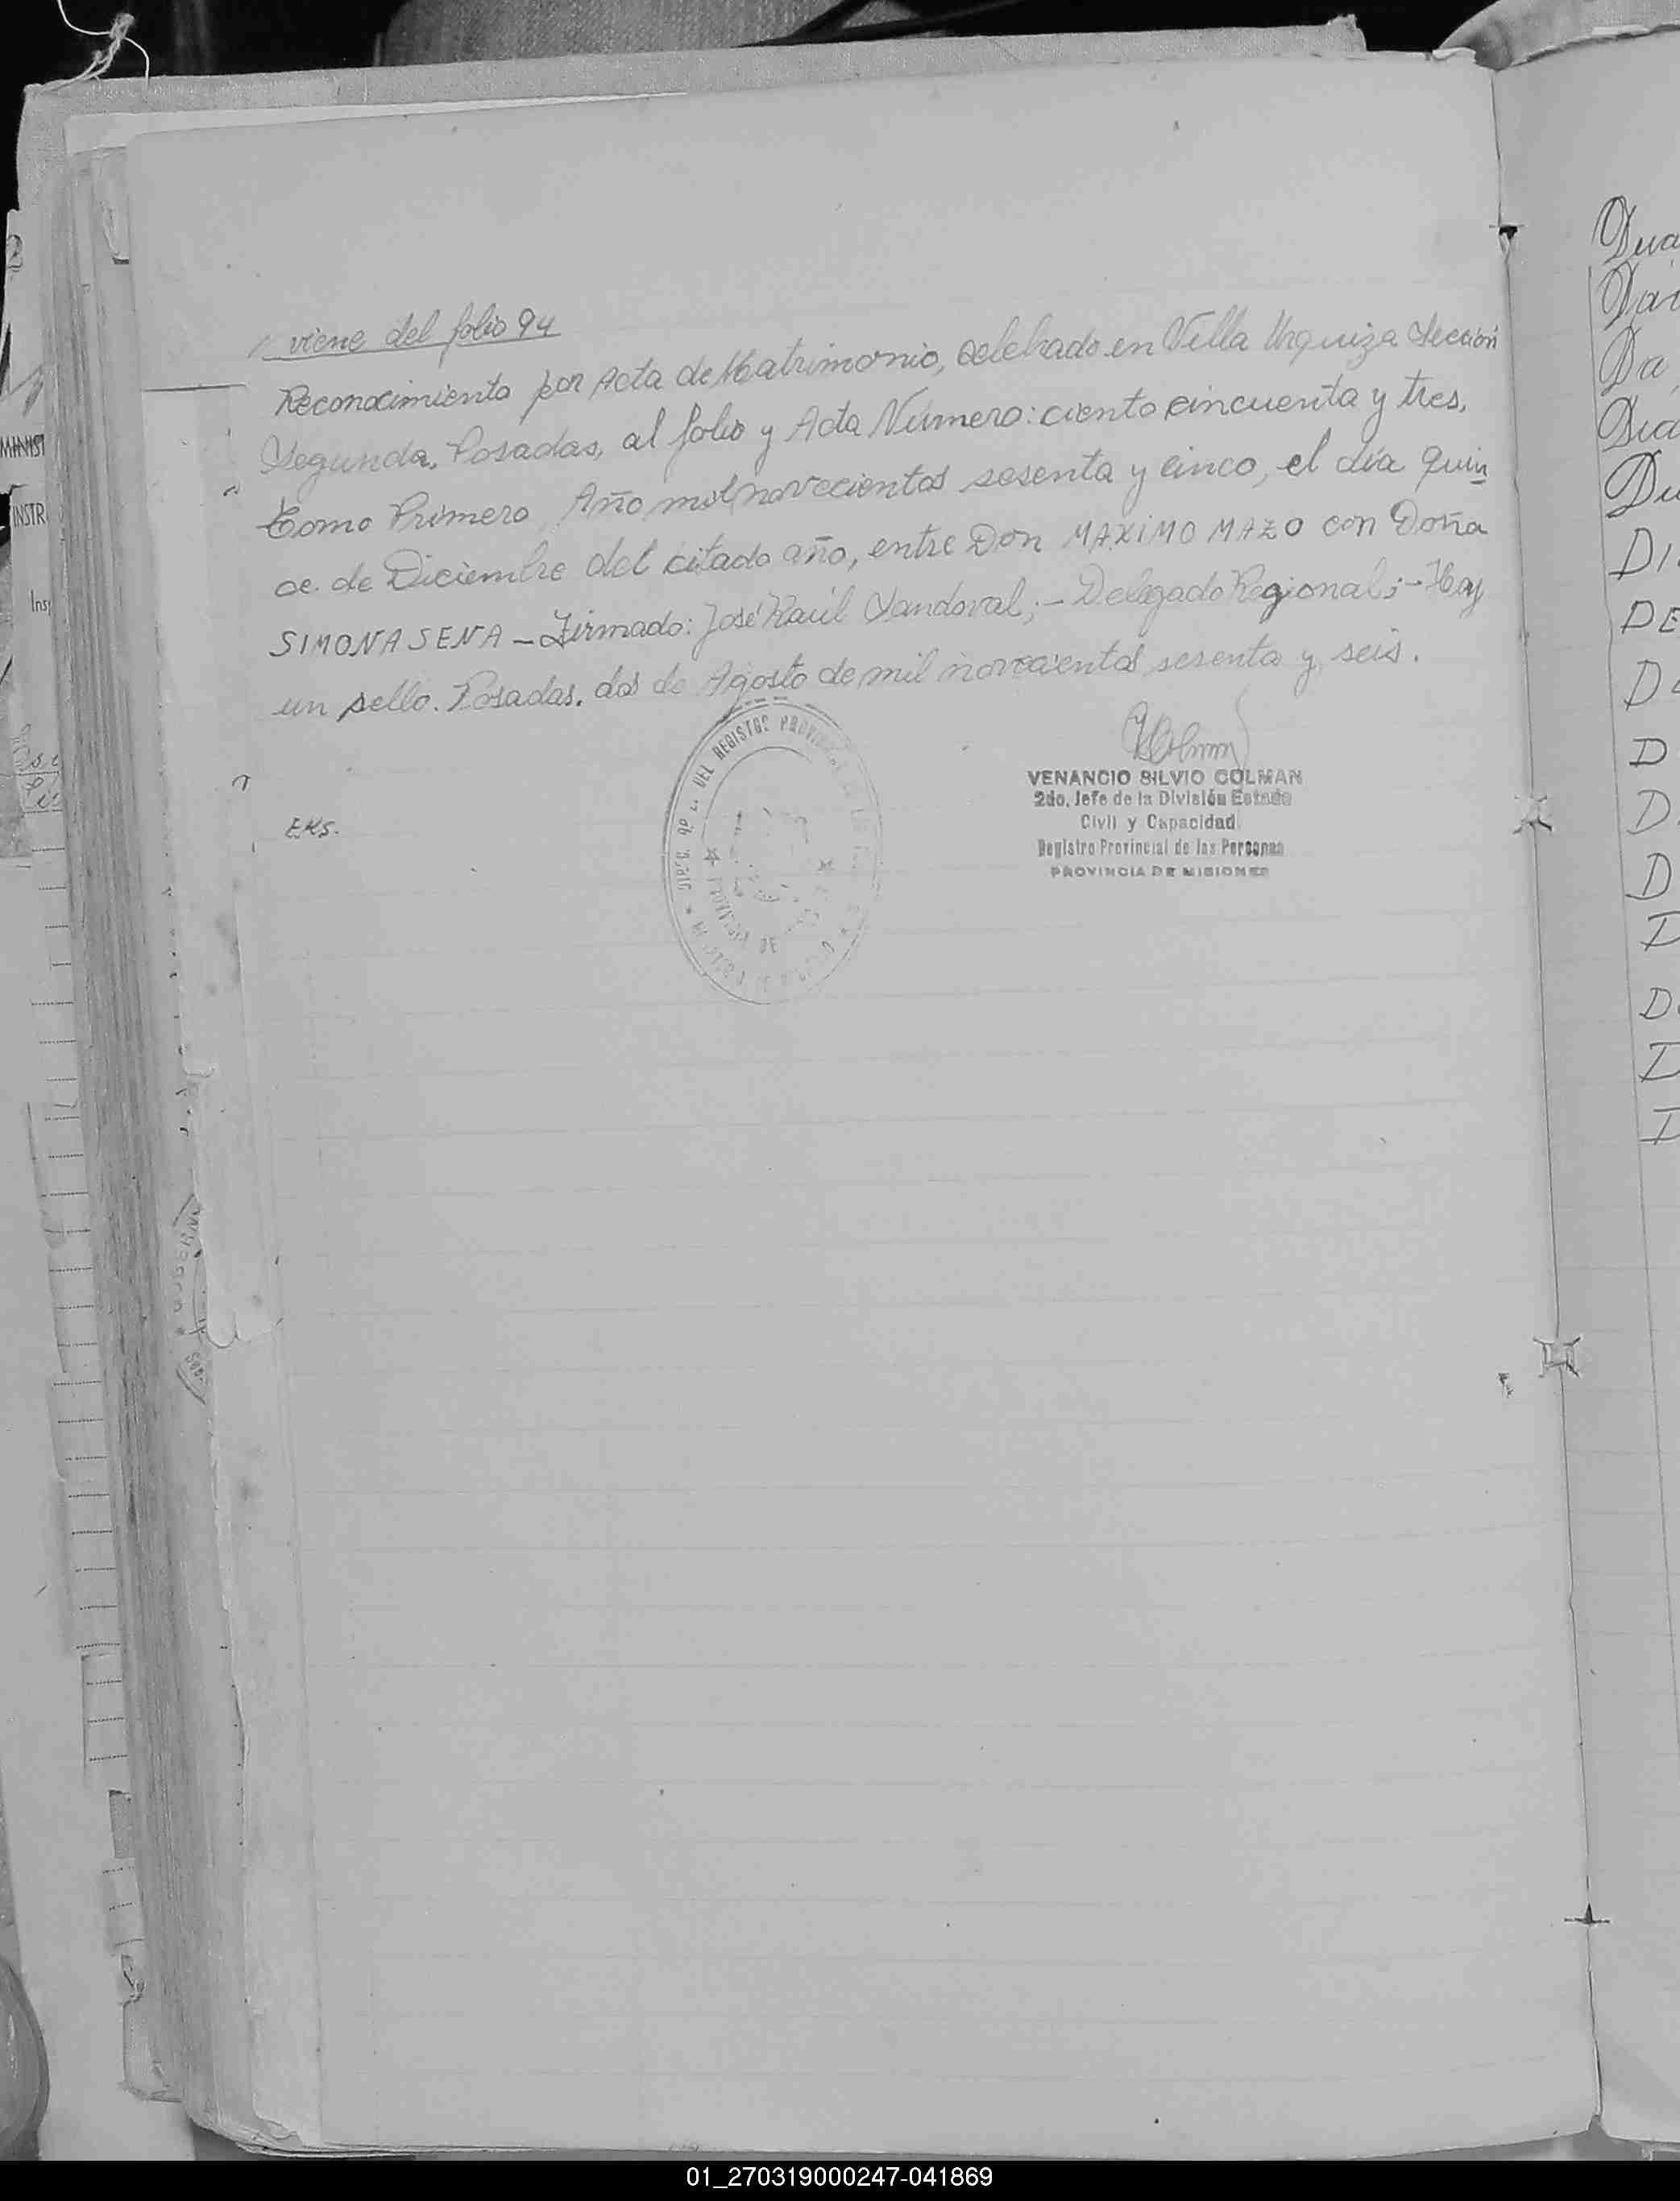 viene del folio 94
Reconocimiento por Acta de Matrimonio, celebrado en Villa Urquiza Sección
Segunda, Posadas, al folio y Acta Número: ciento cincuenta y tres,
Tomo Primero, Año mil novecientos sesenta y cinco, el día quin
ce de Diciembre del citado año, entre Don MAXIMO MAZO con Doña
SIMONA SENA - Firmado: José Raúl Sandoval; - Delegado Regional; - Hay
un sello. Posadas, dos de Agosto de mil novecientos sesenta y seis.
DEL REGISTRO
DE
VENANCIO SILVIO COLMAN
2do. Jefe de la División Estado
Civil y Capacidad
Registro Provincial de las Personas
PROVINCIA DE MISIONES
EKS.
MINIST
INSTR
Ins
Dua
Dai
Da
Dia
Du
DI
DE
D
D
D
D
D
D
01_270319000247-041869